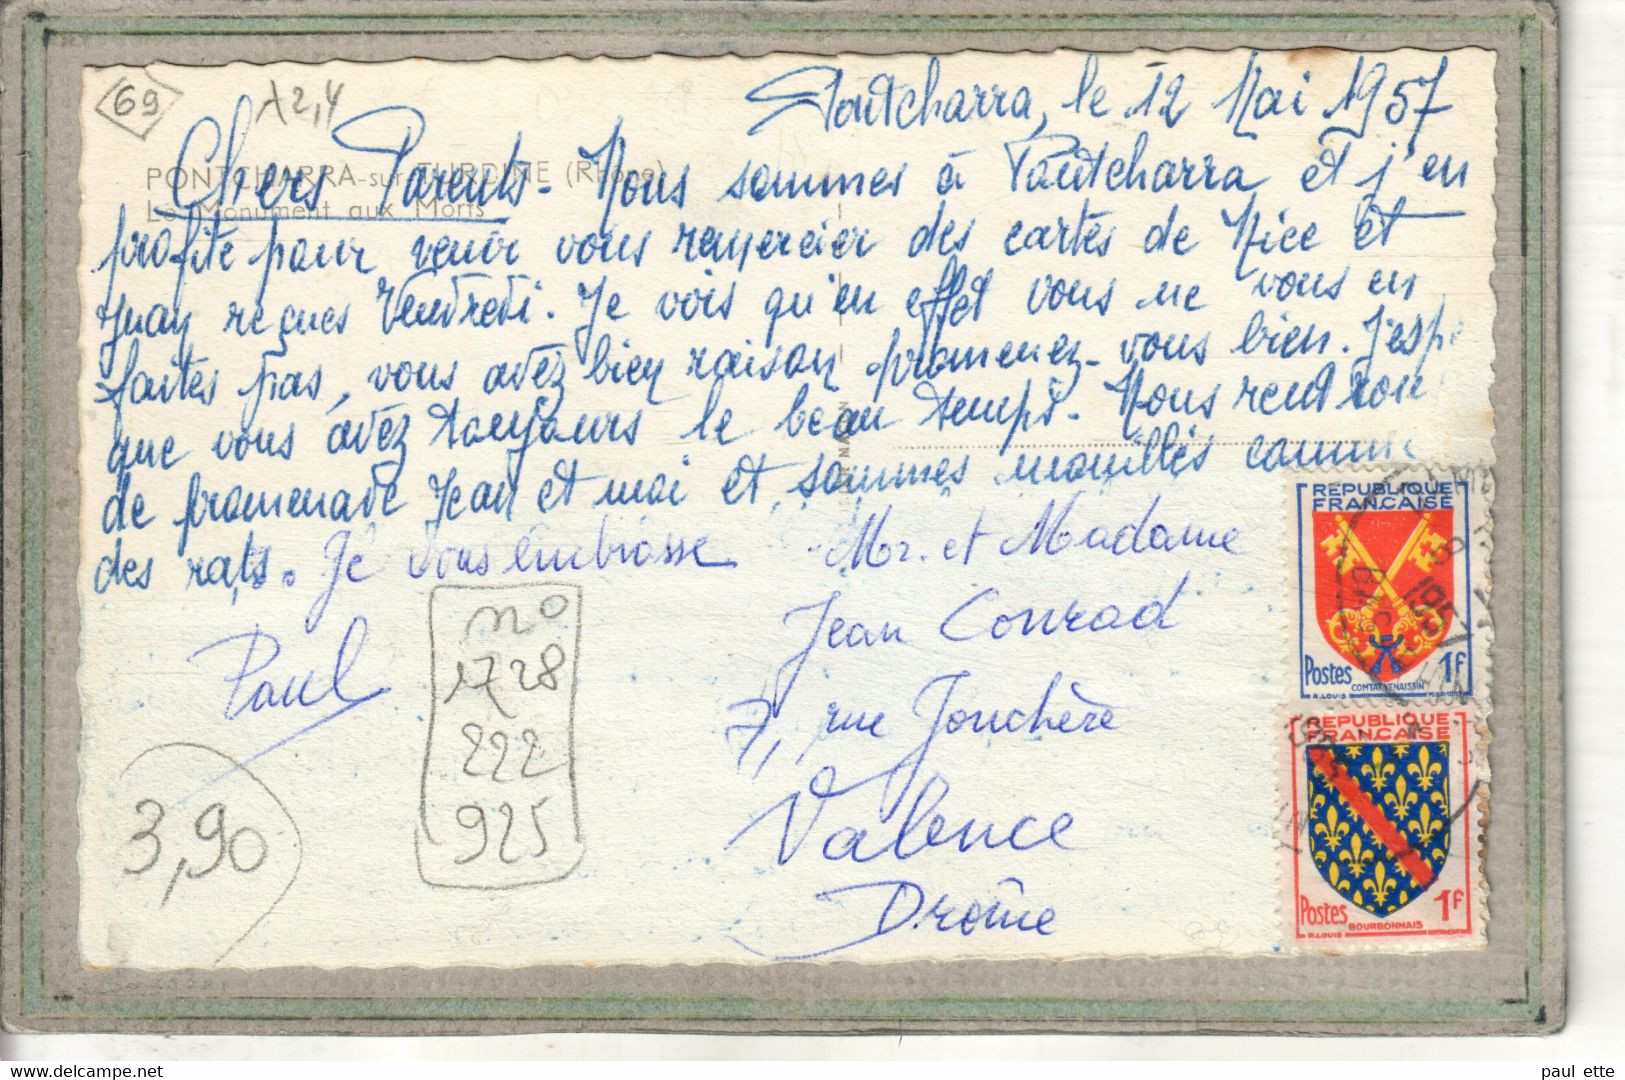 69
12,4
Pontcharra, le 12 Mai 1957
PONTCHARRA-sur-TURDINE (Rhône)
Le Monument aux Morts
Chers Parents - Nous sommes à Pontcharra et j'en
profite pour venir vous remercier des cartes de Nice et
reçues Vendredi. Je vois qu'en effet vous ne vous en
faites pas, vous avez bien raison promenez-vous bien. J'espè
que vous avez toujours le beau temps. Nous rentrons
de promenade Jean et moi et sommes mouillés comme
des rats. Je vous embrasse
Paul
Mr. et Madame
Jean Conrad
7, rue Jonchère
Valence
Drôme
no
1728
222
925
3,90
REPUBLIQUE
FRANÇAISE
Postes 1F
COMTAT VENAISSIN
R. LOUIS
REPUBLIQUE
FRANÇAISE
Postes 1F
BOURBONNAIS
R. LOUIS
paul ette